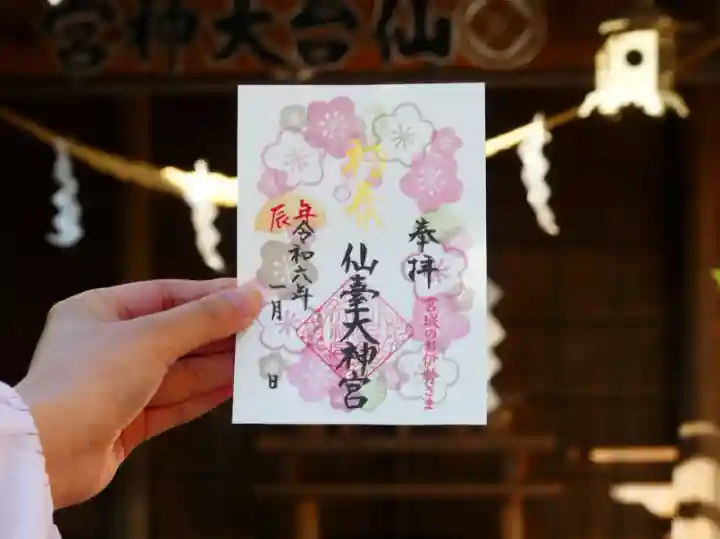 仙台大神宮
奉拝
宮城のお伊勢さま
初春
仙臺大神宮
辰年
令和六年
一月
日